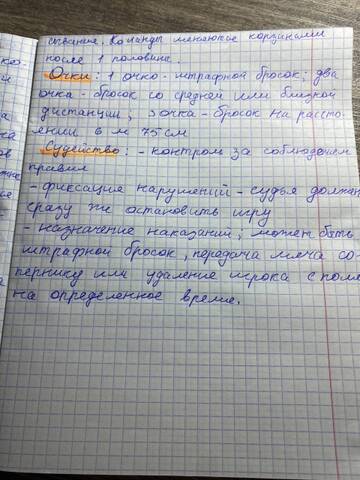 сивания. Команды меняются корзинами
после 1 половине.
Очки: 1 очко - штрафной бросок; два
очка - бросок со средней или близкой
дистанции, 3 очка - бросок на рассто-
янии 6 м 75 см
Судейство: - контроль за соблюдением
правил
- фиксация нарушений - судья должен
сразу же остановить игру
- назначение наказании; может быть
штрафной бросок, передача мяча со-
пернику или удаление игрока с поле
на определенное время.